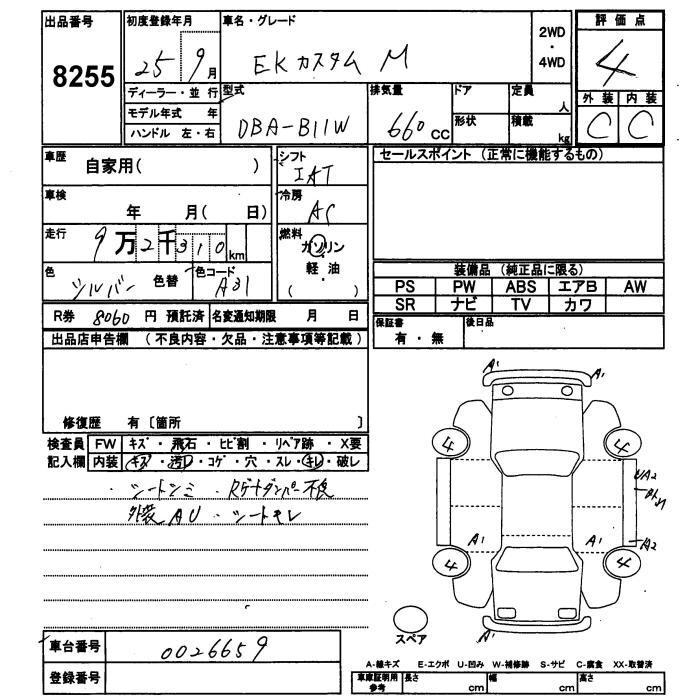 出品番号 初度登録年月 車名・グレード 2WD ・ 4WD 評価点
8255 25 9月 EKカスタム M 4
ディーラー・並行 型式 排気量 ドア 定員 人 外装 内装
モデル年式 年 DBA-B11W 660cc 形状 積載 kg C C
ハンドル 左・右
車歴 自家用( ) シフト IAT セールスポイント (正常に機能するもの)
車検 年 月( 日) 冷房 AC
走行 9万2千310km 燃料 ガソリン・軽油 ( )
色 シルバー 色替 色コード A31
装備品 (純正品に限る)
PS PW ABS エアB AW
SR ナビ TV カワ
R券 8060円 預託済 名変通知期限 月 日
保証書 有・無 後日品
出品店申告欄 (不良内容・欠品・注意事項等記載)
修復歴 有〔箇所 〕
検査員 FW キズ・飛石・ヒビ割・リペア跡・X要
記入欄 内装 キズ・汚レ・コゲ・穴・スレ・キレ・破レ
・シートシミ ・Rゲートダンパー不良
外装AU ・シートキレ
A1 A1
4 4
UA2
A1 A1 A2
4 4
A1
スペア
車台番号 0026659
登録番号
A-線キズ E-エクボ U-凹み W-補修跡 S-サビ C-腐食 XX-取替済
車庫証明用参考 長さ cm 幅 cm 高さ cm